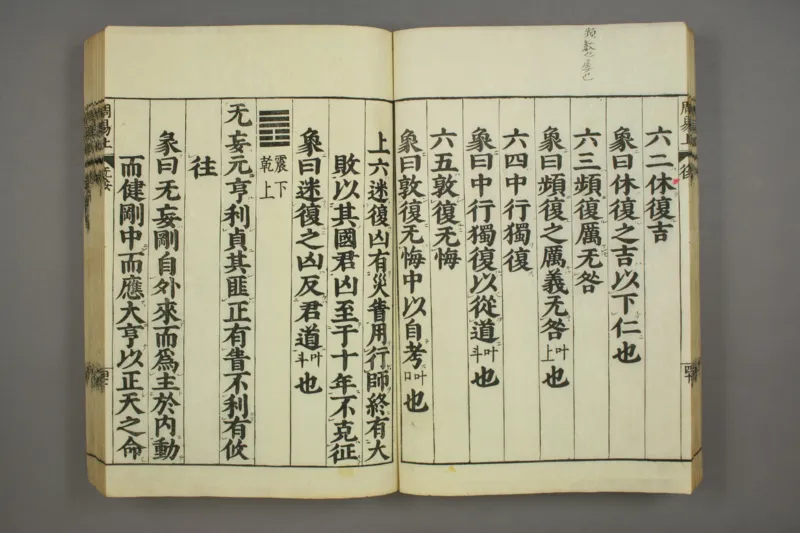 頻數也
六二休復吉
象曰休復之吉以下仁也
六三頻復厲无咎
象曰頻復之厲義无咎叶上也
六四中行獨復
象曰中行獨復以從道叶斗也
六五敦復无悔
象曰敦復无悔中以自考叶口也
上六迷復凶有災眚用行師終有大
敗以其國君凶至于十年不克征
象曰迷復之凶反君道叶斗也
震下
乾上
无妄元亨利貞其匪正有眚不利有攸
往
彖曰无妄剛自外來而爲主於內動
而健剛中而應大亨以正天之命
周易上
周易上